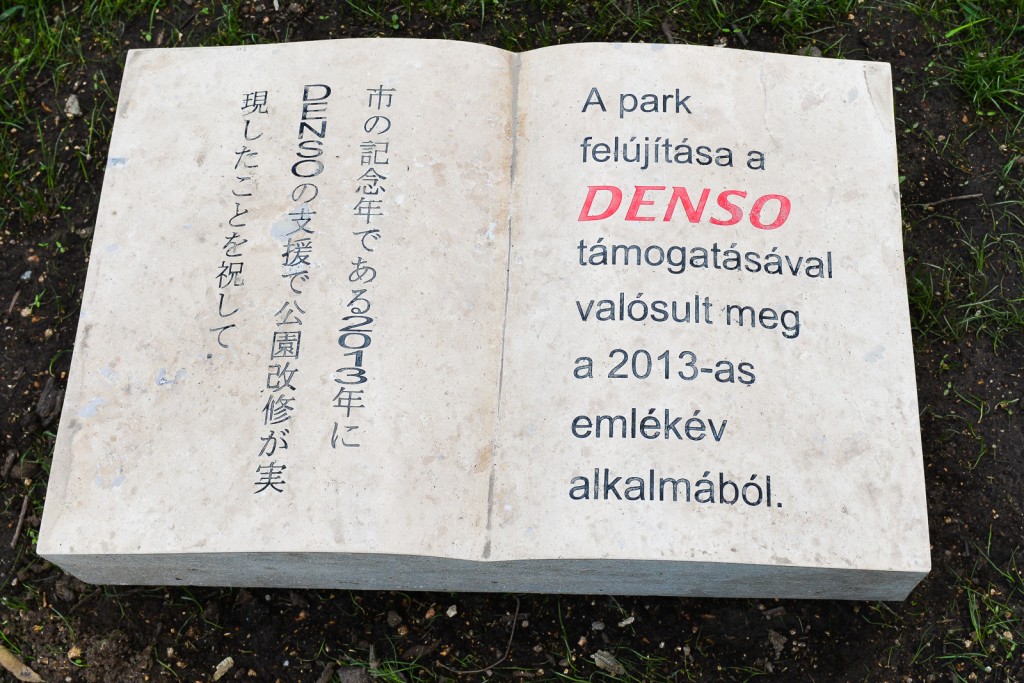 市の記念年である2013年に
DENSOの支援で公園改修が実
現したことを祝して
A park
felújítása a
DENSO
támogatásával
valósult meg
a 2013-as
emlékév
alkalmából.